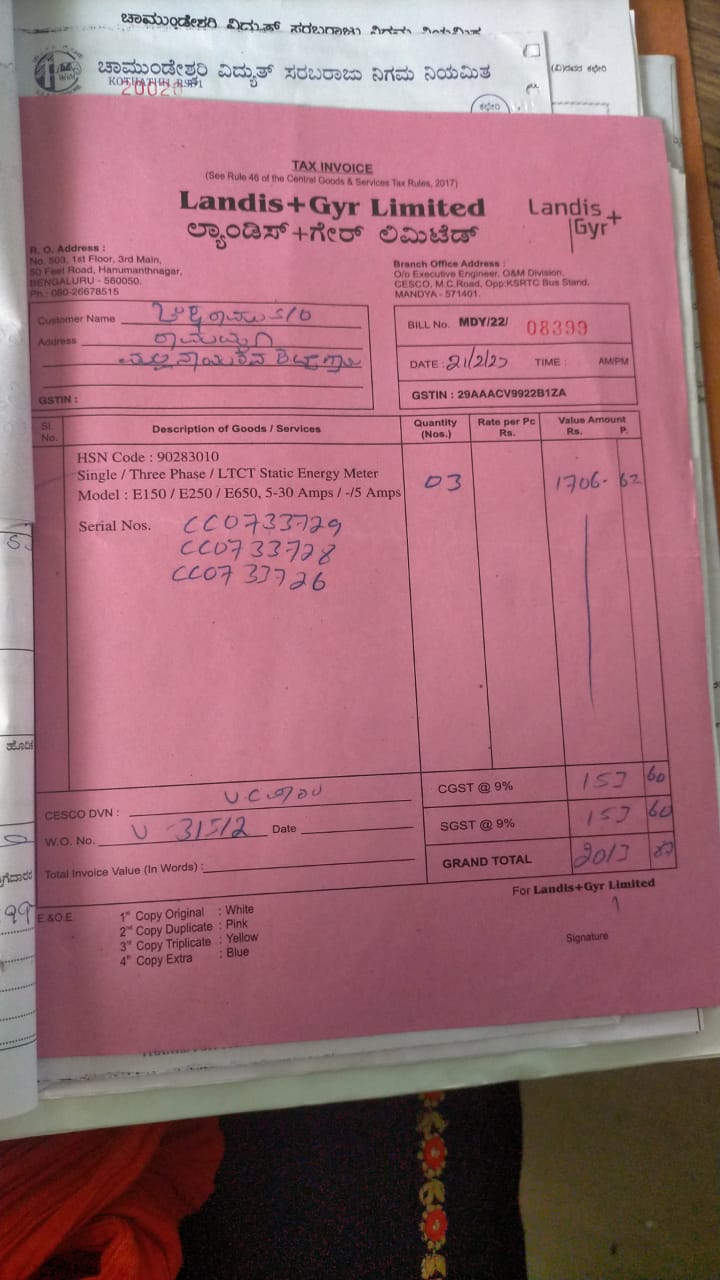 ಚಾಮುಂಡೇಶ್ವರಿ ವಿದ್ಯುತ್ ಸರಬರಾಜು ನಿಗಮ ನಿಯಮಿತ
ಚಾಮುಂಡೇಶ್ವರಿ ವಿದ್ಯುತ್ ಸರಬರಾಜು ನಿಗಮ ನಿಯಮಿತ
TAX INVOICE
(See Rule 46 of the Central Goods & Services Tax Rules, 2017)
Landis+Gyr Limited
ಲ್ಯಾಂಡಿಸ್+ಗೇರ್ ಲಿಮಿಟೆಡ್
Landis+
Gyr
R. O. Address :
No. 503, 1st Floor, 3rd Main,
50 Feet Road, Hanumanthnagar,
BENGALURU - 560050.
Ph.: 080-26678515
Branch Office Address :
O/o Executive Engineer, O&M Division,
CESCO, M.C.Road, Opp:KSRTC Bus Stand,
MANDYA - 571401.
Customer Name S/O
Address
GSTIN :
BILL No. MDY/22/ 08399
DATE : 21/2/23 TIME : AM/PM
GSTIN : 29AAACV9922B1ZA
Sl. No. Description of Goods / Services Quantity (Nos.) Rate per Pc Rs. Value Amount Rs. P.
HSN Code : 90283010
Single / Three Phase / LTCT Static Energy Meter
Model : E150 / E250 / E650, 5-30 Amps / -/5 Amps 03 1706-62
Serial Nos. CC0733729
CC0733728
CC0733726
CGST @ 9% 153 60
SGST @ 9% 153 60
GRAND TOTAL 2013
CESCO DVN :
W.O. No. Date
Total Invoice Value (In Words) :
For Landis+Gyr Limited
E.&O.E.
1st Copy Original : White
2nd Copy Duplicate : Pink
3rd Copy Triplicate : Yellow
4th Copy Extra : Blue
Signature